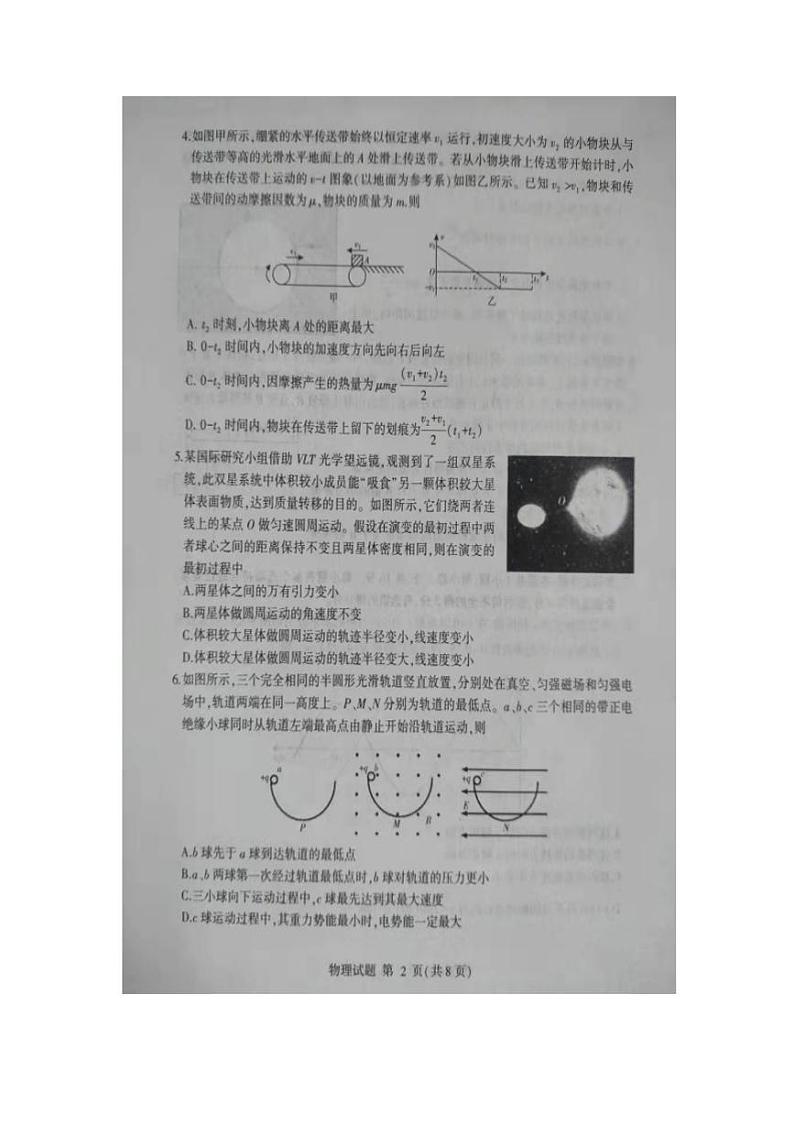 4.如图甲所示,绷紧的水平传送带始终以恒定速率v₁运行,初速度大小为v₂的小物块从与
传送带等高的光滑水平地面上的A处滑上传送带。若从小物块滑上传送带开始计时,小
物块在传送带上运动的v-t图象(以地面为参考系)如图乙所示。已知v₂>v₁,物块和传
送带间的动摩擦因数为μ、物块的质量为m.则
v₁ v₂ A
甲
v v₂ O t₁ t₂ t₃ t -v₁
乙
A. t₂时刻,小物块离A处的距离最大
B. 0-t₂时间内,小物块的加速度方向先向右后向左
C. 0-t₂时间内,因摩擦产生的热量为μmg (v₁+v₂)t₂/2
D. 0-t₂时间内,物块在传送带上留下的划痕为 (v₂+v₁)/2 (t₁+t₂)
5.某国际研究小组借助VLT光学望远镜,观测到了一组双星系
统,此双星系统中体积较小成员能“吸食”另一颗体积较大星
体表面物质,达到质量转移的目的。如图所示,它们绕两者连
线上的某点O做匀速圆周运动。假设在演变的最初过程中两
者球心之间的距离保持不变且两星体密度相同,则在演变的
最初过程中
O
A.两星体之间的万有引力变小
B.两星体做圆周运动的角速度不变
C.体积较大星体做圆周运动的轨迹半径变小,线速度变小
D.体积较大星体做圆周运动的轨迹半径变大,线速度变小
6.如图所示,三个完全相同的半圆形光滑轨道竖直放置,分别处在真空、匀强磁场和匀强电
场中,轨道两端在同一高度上。P、M、N分别为轨道的最低点。a、b、c三个相同的带正电
绝缘小球同时从轨道左端最高点由静止开始沿轨道运动,则
+q a P
+q b M B
+q c E N
A.b球先于a球到达轨道的最低点
B.a、b两球第一次经过轨道最低点时,b球对轨道的压力更小
C.三小球向下运动过程中,c球最先达到其最大速度
D.c球运动过程中,其重力势能最小时,电势能一定最大
物理试题 第 2 页(共8页)